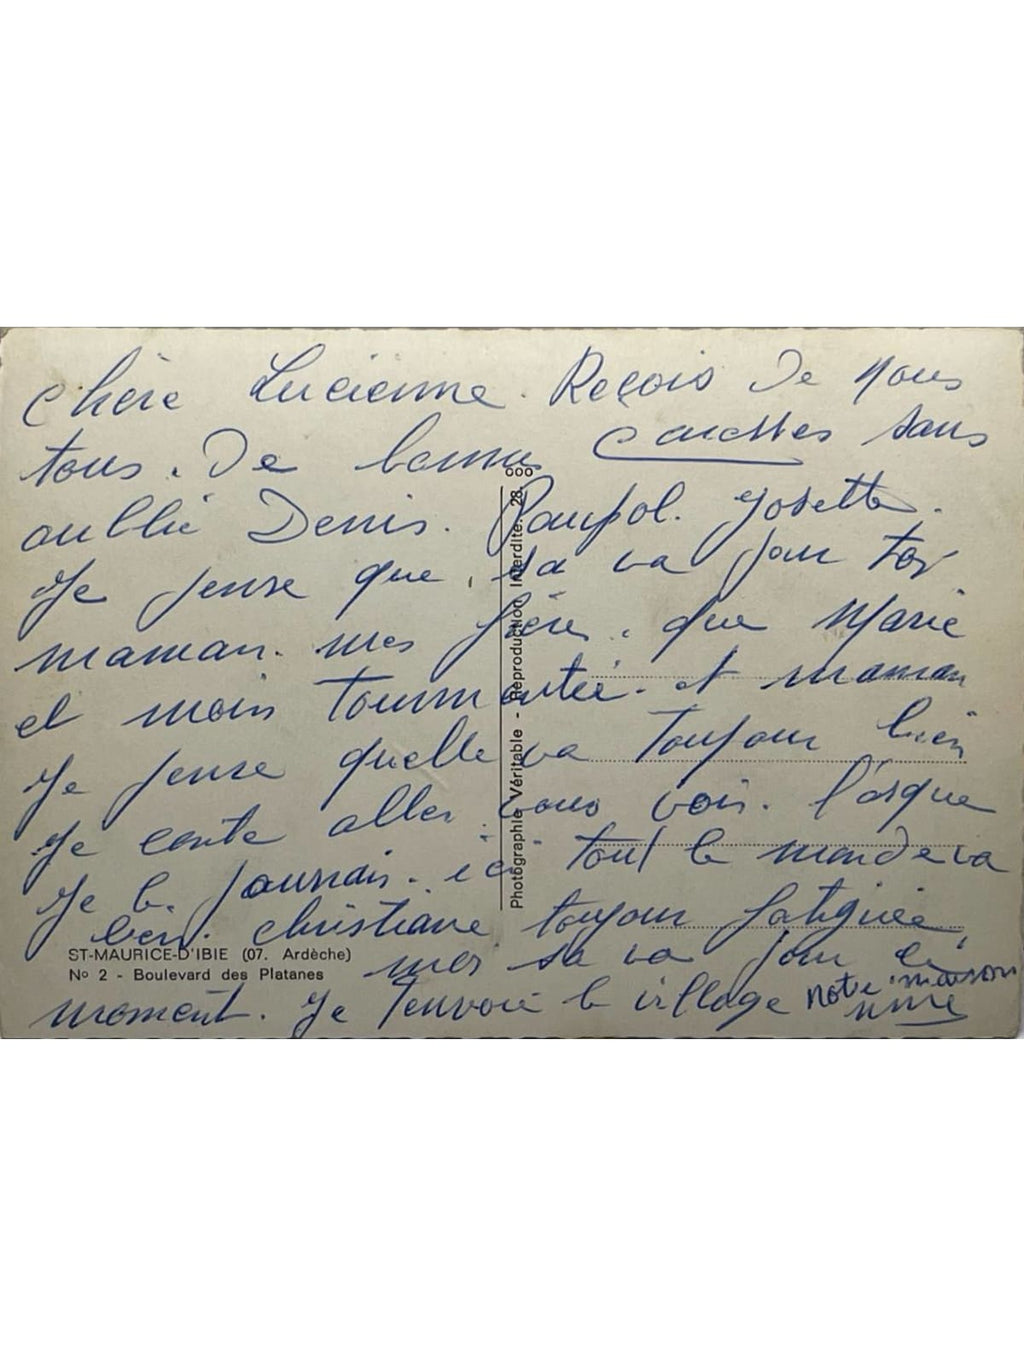 Chère Lucienne. Reçois de nous
tous. De bonnes caresses sans
oublié Denis. Josette.
Je pense que, sa va pour toi
maman. mes frères. que Marie
et moin tourmentée. et maman
Je pense quelle va toujour bien
Je conte aller vous voir. l'orsque
Je le pourrais. ici tout le monde va
bien. Christiane toujour fatiguée,
mes sa va pour le
moment. Je t'envoie le village notre maison
ST-MAURICE-D'IBIE (07. Ardèche)
Nº 2 - Boulevard des Platanes
Photographie Véritable - Reproduction Interdite. 28.